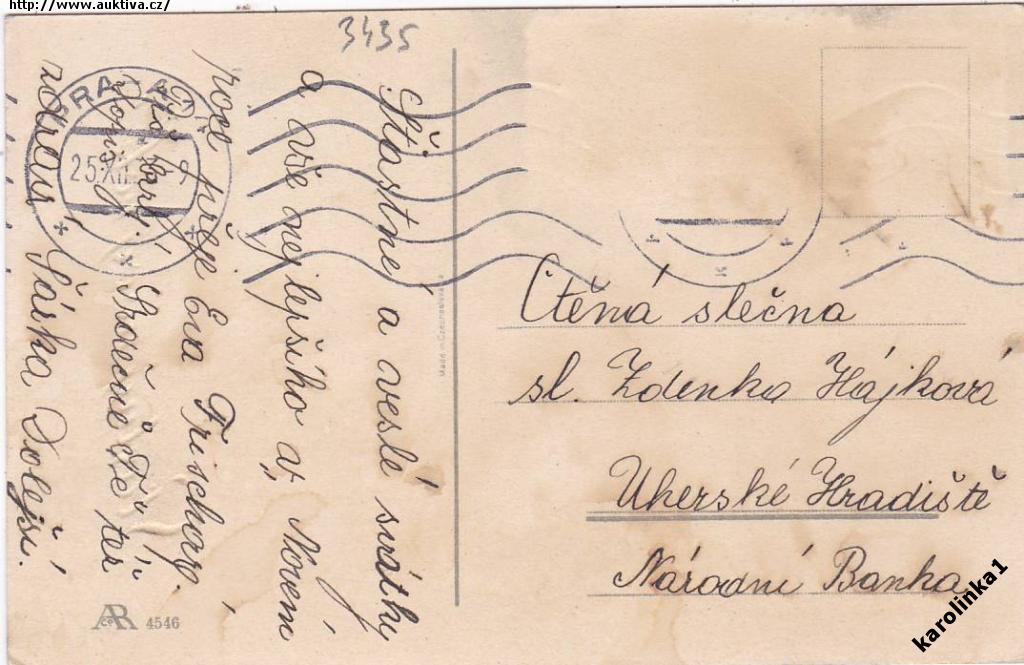 http://www.auktiva.cz/
3435
Šťastné a veselé svátky
a vše nejlepšího v Novém
roce přeje Eva
Srdečně Tě
zdraví Šárka Dolejší.
25.XII. 9
Made in Czechoslovakia
Ctěná slečna
sl. Zdenka Hájková
Uherské Hradiště
Národní Banka
4546
karolinka1